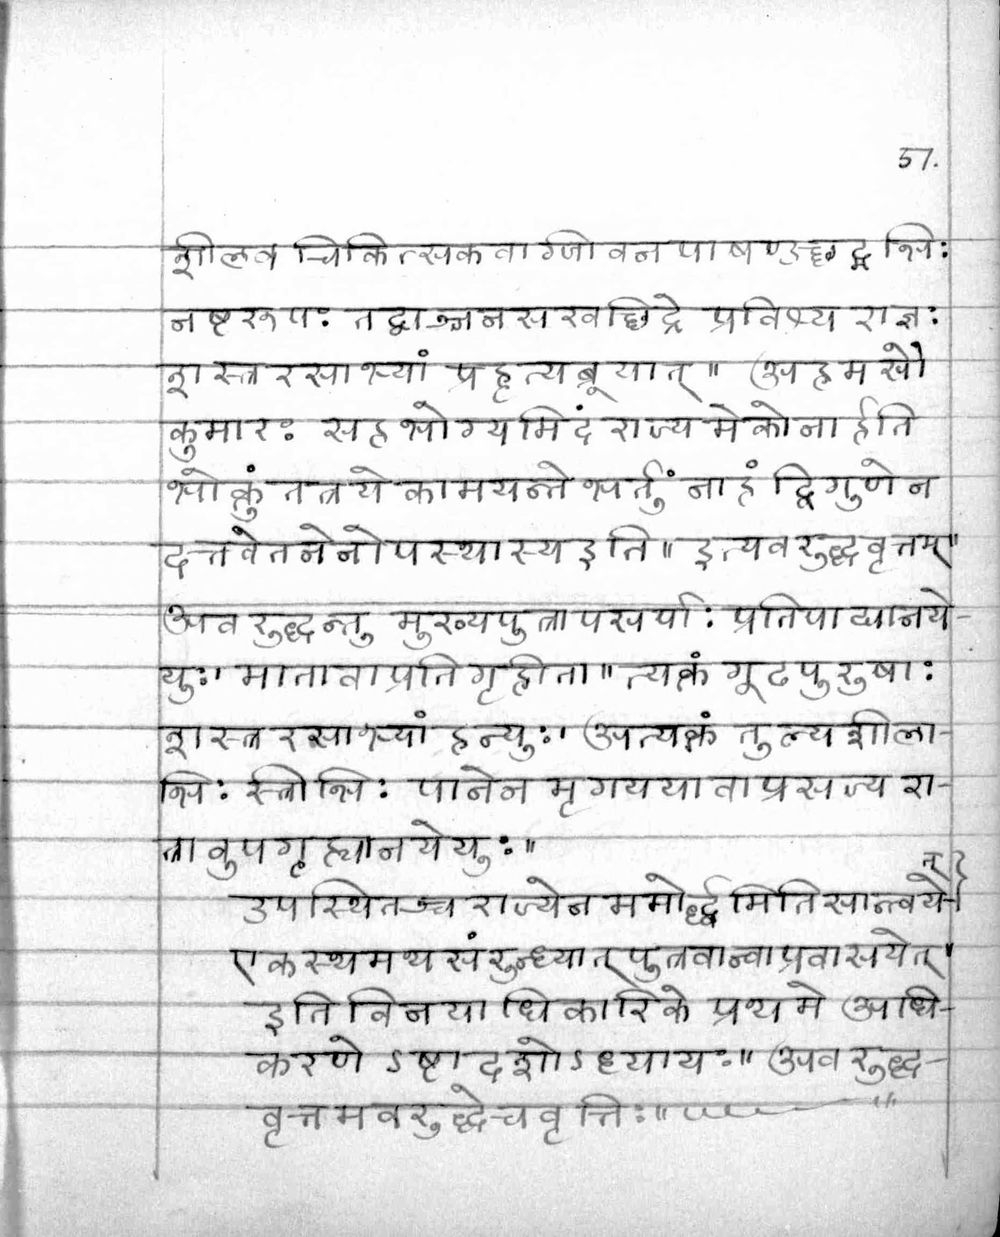 57.
शीलव चिकित्सक वाग्जीवन पाषण्डछद्मभिः
नष्टरूपः तद्व्यञ्जनसखश्छिद्रे प्रविश्य राज्ञः
शस्त्ररसाभ्यां प्रहृत्यब्रूयात्॥ अहमसौ
कुमारः सहभोग्यमिदं राज्यमेकोनार्हति
भोक्तुं तत्रये कामयन्ते भर्तुं नाहं द्विगुणेन
दत्तवेतनेनोपस्थास्य इति॥ इत्यवरुद्धवृत्तम्॥
अवरुद्धन्तु मुख्यपुत्रापसर्पाः प्रतिपाद्यानये-
युः। मातावाप्रतिगृहीता॥ त्यक्तं गूढपुरुषाः
शस्त्ररसाभ्यां हन्युः। अत्यक्तं तुल्यशीला-
भिः स्त्रीभिः पानेन मृगययावाप्रसज्य रा-
त्रावुपगृह्यानयेयुः॥
उपस्थितञ्च राज्येन ममोर्द्ध्वमितिसान्त्वयेत्।
एकस्थमथ संरुन्ध्यात् पुत्रवान्वाप्रवासयेत्॥
इति विनयाधिकारिके प्रथमे अधि-
करणे ऽष्टादशोऽध्यायः॥ अवरुद्ध-
वृत्तमवरुद्धेचवृत्तिः॥